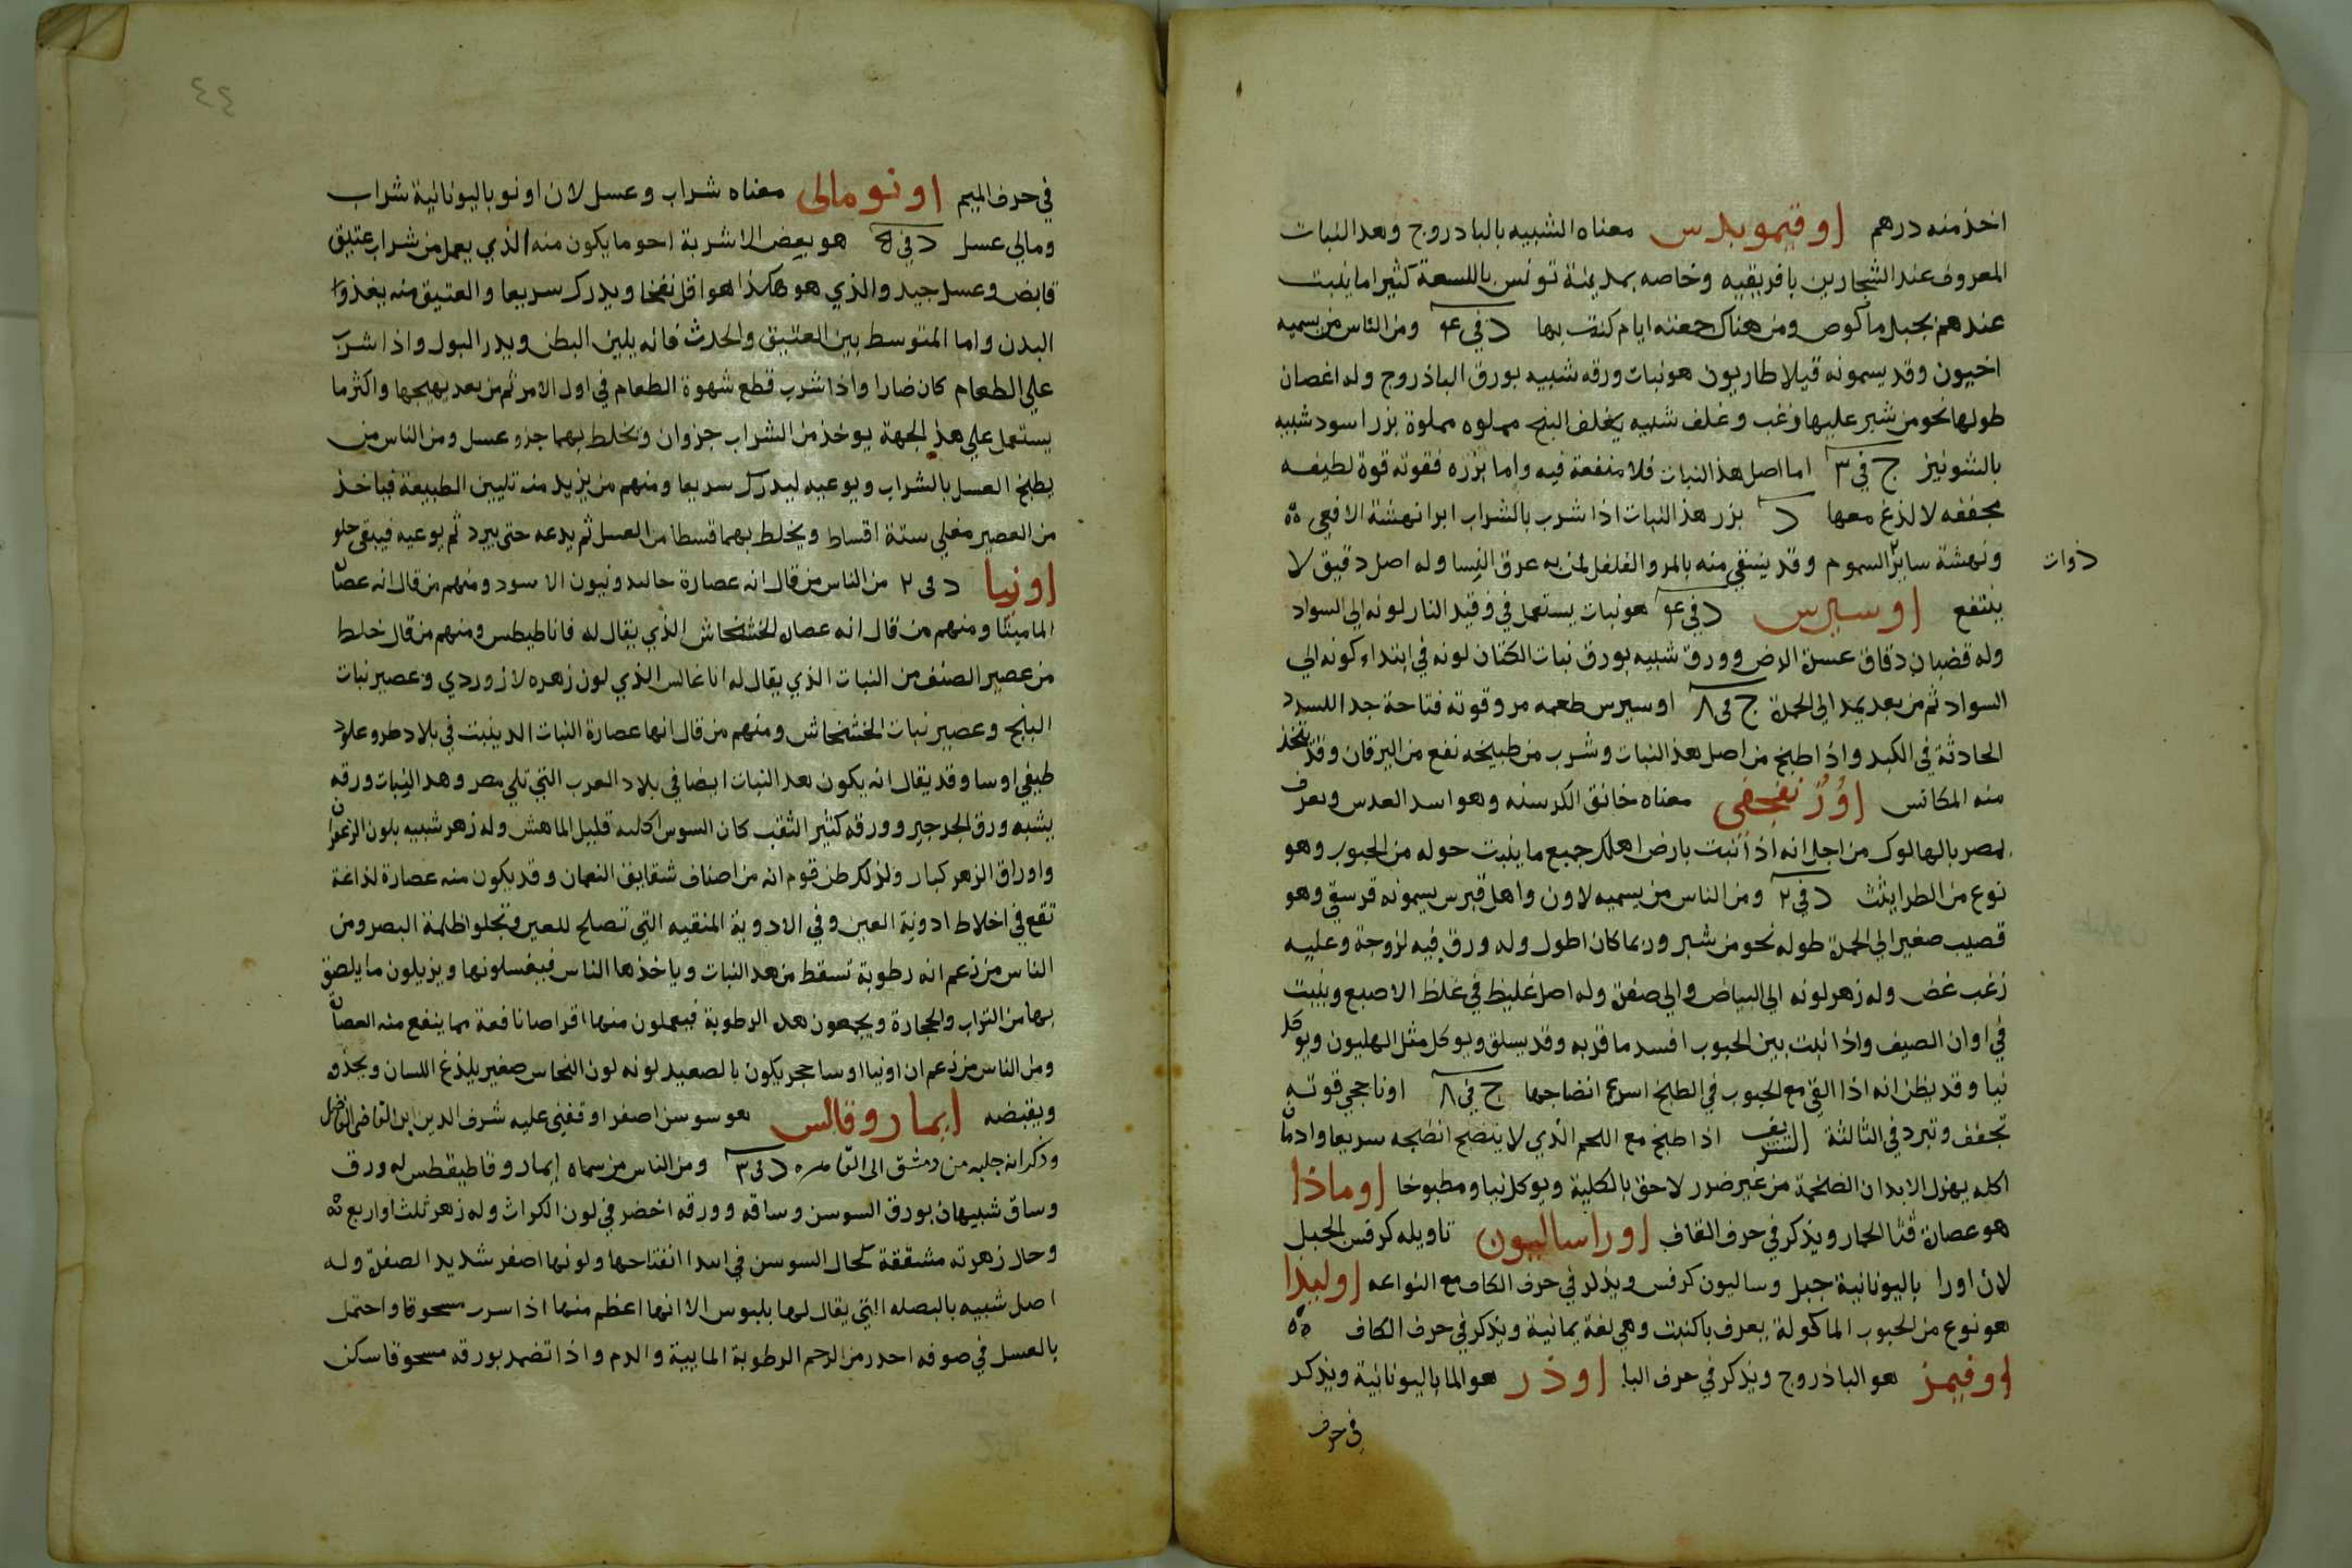 اخذ منه درهم اوقيمويدس معناه الشبيه بالبادروج وهد النبات
المعروف عند الشجارين بافريقيه وخاصه بمدينة تونس باللسعة كثيرا ما ينبت
عندهم بجبل ماكوص ومن هناك جمعته ايام كنت بها د في ٤ ومن الناس من يسميه
اخيون وقد يسمونه قيلاطاريون هو نبات ورقه شبيه بورق الباذروج وله اغصان
طولها نحو من شبر عليها زغب وغلف شبيه بغلف البنج مملوه مملوة بزر اسود شبيه
بالشونيز ج في ٣ اما اصل هذ النبات فلا منفعة فيه واما بزره فقوته قوة لطيفه
مجففه لا لذغ معها د بزر هذ النبات اذا شرب بالشراب ابرا نهشة الافعى
ونهشة سائر السموم وقد يسقى منه بالمر والفلفل لمن به عرق النسا وله اصل دقيق لا
ذوات
ينتفع اوسيرس د في ٤ هو نبات يستعمل في وقيد النار لونه الى السواد
وله قضبان دقاق عسرة الرض وورق شبيه بورق نبات الكتان لونه في ابتداء كونه الى
السواد ثم من بعد يمد الى الحمرة ج في ٨ اوسيرس طعمه مر وقوته فتاحة جدا للسدد
الحادثة في الكبد واذا طبخ من اصل هذ النبات وشرب من طبيخه نفع من اليرقان وقد يتخذ
منه المكانس اورنفجفى معناه خانق الكرسنه وهو اسد العدس ويعرف
بمصر بالهالوك من اجل انه اذا نبت بارض اهلك جميع ما ينبت حوله من الحبوب وهو
نوع من الطراثيث د في ٢ ومن الناس من يسميه لاون واهل قبرس يسمونه قرسقي وهو
قضيب صغير الى الحمرة طوله نحو من شبر وربما كان اطول وله ورق فيه لزوجة وعليه
زغب غض وله زهر لونه الى البياض والى صفرة وله اصل غليظ في غلظ الاصبع وينبت
في اوان الصيف واذا نبت بين الحبوب افسد ما قربه وقد يسلق ويوكل مثل الهليون ويوكل
نيا وقد يظن انه اذا القي مع الحبوب في الطبخ اسرع انضاجها ج في ٨ اوناجي قوته
تجفف وتبرد في الثالثة الشريف اذا طبخ مع اللحم الذي لا ينضج انضجه سريعا وادمان
اكله يهزل الابدان الضخمة من غير ضرر لاحق بالكلية ويوكل نيا ومطبوخا اوماذا
هو عصارة قثا الحمار ويذكر في حرف القاف اوراساليون تاويله كرفس الجبل
لان اورا باليونانية جبل وساليون كرفس ويذكر في حرف الكاف مع انواعه اوليذا
هو نوع من الحبوب الماكولة يعرف باكنبت وهي لغة يمانية ويذكر في حرف الكاف
اوفيمن هو الباذروج ويذكر في حرف البا اوذر هو الما باليونانية ويذكر
في حرف
٤٤
في حرف الميم اونومالى معناه شراب وعسل لان اونو باليونانية شراب
ومالي عسل د في ٥ هو بعض الاشربة احو ما يكون منه الذي يعمل من شراب عتيق
قابض وعسل جيد والذي هو هكذا هو اقل نفخا ويدرك سريعا والعتيق منه يغذوا
البدن واما المتوسط بين العتيق والحدث فانه يلين البطن ويدر البول واذا شرب
على الطعام كان ضارا واذا شرب قطع شهوة الطعام في اول الامر ثم من بعد يهيجها واكثر ما
يستعمل على هذ الجهة يوخذ من الشراب جزوان ويخلط بهما جزو عسل ومن الناس من
يطبخ العسل بالشراب ويوعيه ليدرك سريعا ومنهم من يزيد منه تليين الطبيعة فياخذ
من العصير مغلي ستة اقساط ويخلط بهما قسطا من العسل ثم يدعه حتى يبرد ثم يوعيه فيبقى حلو
اونيا د في ٢ من الناس من قال انه عصارة خاليدونيون الاسود ومنهم من قال انه عصارة
الماميثا ومنهم من قال انه عصاره الخشخاش الذي يقال له فاناطيطس ومنهم من قال خلط
من عصير الصنف من النبات الذي يقال له اناغالس الذي لون زهره لازوردي وعصير نبات
البنج وعصير نبات الخشخاش ومنهم من قال انها عصارة النبات الد ينبت في بلاد طروغلود
طيقي اوسا وقد يقال انه يكون هد النبات ايضا في بلاد العرب التي تلي مصر وهد النبات ورقه
يشبه ورق الجرجير وورقه كثير الثقب كان السوس اكله قليل الماهش وله زهر شبيه بلون الزعفران
واوراق الزهر كبار ولذلك ظن قوم انه من اصناف شقايق النعمان وقد يكون منه عصارة لذاعة
تقع في اخلاط ادوية العين وفي الادوية المنقيه التي تصلح للعين وتجلوا ظلمة البصر ومن
الناس من زعم انه رطوبة تسقط من هد النبات وياخذها الناس فيغسلونها ويزيلون ما يلصق
بها من التراب والحجارة ويجمعون هد الرطوبة فيعملون منها اقراصا نافعة مما ينفع منه العصارة
ومن الناس من زعم ان اونيا اوسا حجر يكون بالصعيد لونه لون النحاس صغير يلذغ اللسان ويحذو
ويقبضه ايماروقالس هو سوسن اصفر اوقفني عليه شرف الدين ابن القاضي الفاضل
وذكر انه جلبه من دمشق الى القاهره د في ٣ ومن الناس من سماه ايماروقاطيقطس له ورق
وساق شبيهان بورق السوسن وساقه وورقه اخضر في لون الكراث وله زهر ثلث او اربع
وحال زهرته مشققة كحال السوسن في ابتدا انفتاحها ولونها اصفر شديد الصفرة وله
اصل شبيه بالبصله التي يقال لها بلبوس الا انها اعظم منها اذا شرب مسحوقا واحتمل
بالعسل في صوفه احدر من الرحم الرطوبة المايية والدم واذا تضمد بورقه مسحوقا سكن